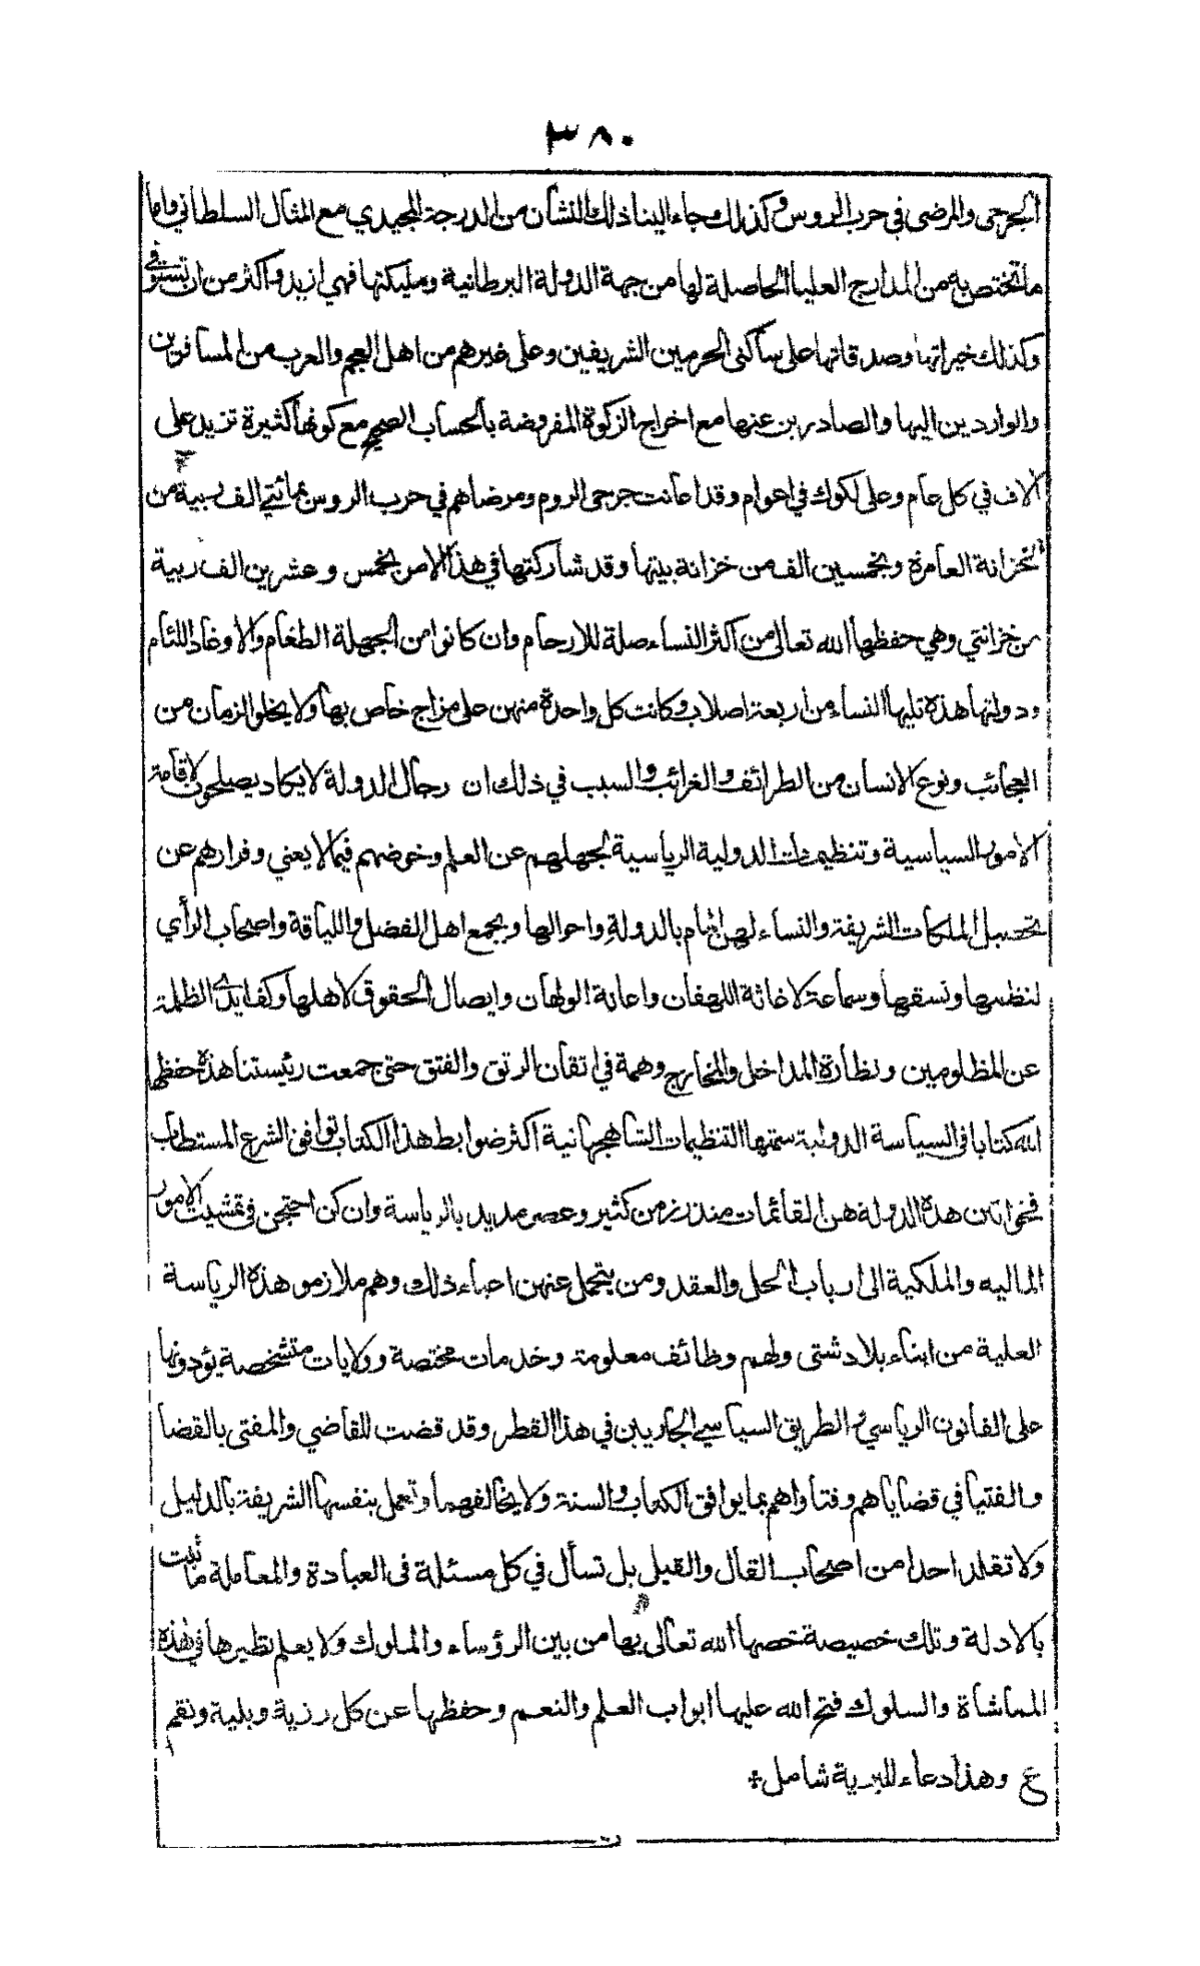 ٣٨٠
الجرحى والمرضى في حرب الروس وكذلك جاء الينا ذلك النشان من الدرجة المجيدي مع المثال السلطاني واما
ما تختص به من المدارج العليا الحاصلة لها من جهة الدولة البرطانية ومليكتها فهي ازيد واكثر من ان تستوفى
وكذلك خيراتها وصدقاتها على ساكني الحرمين الشريفين وعلى غيرهم من اهل العجم والعرب من المسافرين
والواردين اليها والصادرين عنها مع اخراج الزكوة المفروضة بالحساب الصحيح مع كونها كثيرة تزيد على
آلاف في كل عام وعلى لكوك في اعوام وقد اعانت جرحى الروم ومرضاهم في حرب الروس بمائتي الف ربية من
الخزانة العامرة وبخمسين الف من خزانة بيتها وقد شاركتها في هذا الامر بخمس وعشرين الف ربية
من خزانتي وهي حفظها الله تعالى من اكثر النساء صلة للارحام وان كانوا من الجهلة الطغام والاوغاد اللئام
ودولتها هذه تليها النساء من اربعة اصلاب وكانت كل واحدة منهن على مزاج خاص بها ولا يخلو الزمان من
العجائب ونوع الانسان من الطرائف والغرائب والسبب في ذلك ان رجال الدولة لا يكاد يصلحون لاقامة
الامور السياسية وتنظيمات الدولية الرياسية لجهلهم عن العلم وخوضهم فيما لا يعني وفرارهم عن
تحصيل الملكات الشريفة والنساء لهن المام بالدولة واحوالها وبجمع اهل الفضل واللياقة واصحاب الرأي
لنظمها ونسقها وسماعة لاغاثة اللهفان واعانة الولهان وايصال الحقوق لاهلها وكف ايدي الظلمة
عن المظلومين ونظارة المداخل والمخارج وهمة في اتقان الرتق والفتق حتى جمعت رئيستنا هذه حفظها
الله كتابا في السياسة الدولية سمتها التنظيمات الشاهجهانية اكثر ضوابط هذا الكتاب توافق الشرع المستطاب
فخواتين هذه الدولة هن القائمات منذ زمن كثير وعصر مديد بالرياسة وان كن احتجن في تمشيت الامور
الماليه والملكية الى ارباب الحل والعقد ومن يتحمل عنهن اعباء ذلك وهم ملازمو هذه الرياسة
العلية من ابناء بلاد شتى ولهم وظائف معلومة وخدمات مختصة وولايات متشخصة يؤدونها
على القانون الرياسي والطريق السياسي الجاريين في هذا القطر وقد قضت للقاضي والمفتي بالقضا
والفتيا في قضاياهم وفتاواهم بما يوافق الكتاب والسنة ولا يخالفهما وتعمل بنفسها الشريفة بالدليل
ولا تقلد احدا من اصحاب القال والقيل بل تسأل في كل مسئلة في العبادة والمعاملة ما ثبت
بالادلة وتلك خصيصة خصها الله تعالى بها من بين الرؤساء والملوك ولا يعلم نظيرها في هذه
المماشاة والسلوك فتح الله عليها ابواب العلم والنعم وحفظها عن كل رزية وبلية ونقم
ع وهذا دعاء للبرية شامل